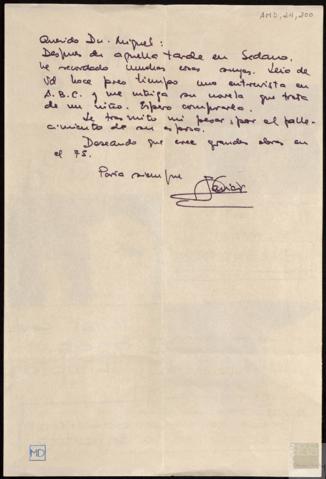 AMD, 24, 200
Querido Dn. Miguel:
Despues de aquella tarde en Sedano.
he recordado muchas cosas suyas. Leio de
Vd hace poco tiempo una entrevista en
A.B.C. y me intriga su novela que trata
de un niño. Espero comprarla.
Le trasmito mi pesar, por el falle-
cimiento de su esposa.
Deseando que cree grandes obras en
el 75.
Para siempre
Javier
MD